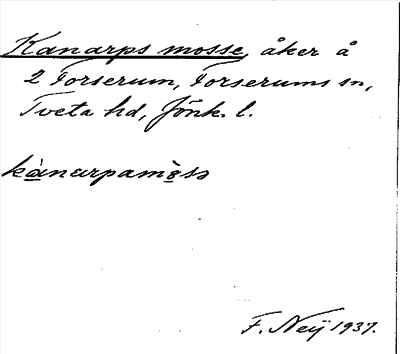 Kanarps mosse, åker å
2 Forserum, Forserums sn,
Tveta hd, Jönk. l.
kànarpamòss
F. Neij 1937.